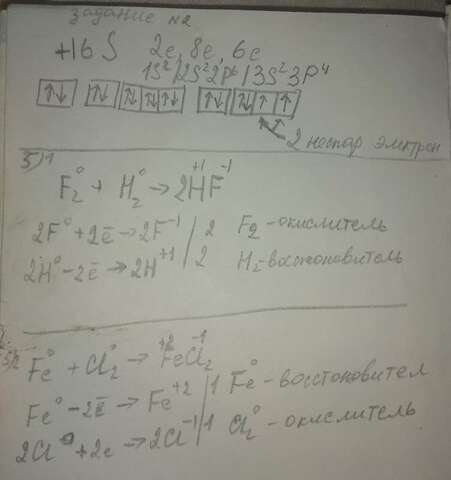 задание №2
+16 S 2e, 8e, 6e
1S² | 2S² 2P⁶ | 3S² 3P⁴
↑↓ ↑↓ ↑↓ ↑↓ ↑↓ ↑↓ ↑↓ ↑ ↑
2 неспар электрон
5)1
F₂⁰ + H₂⁰ → 2H⁺¹F⁻¹
2F⁰ + 2ē → 2F⁻¹ | 2 F2 - окислитель
2H⁰ - 2ē → 2H⁺¹ | 2 H₂ - востоновитель
5)2
Fe⁰ + Cl₂⁰ → Fe⁺²Cl₂⁻¹
Fe⁰ - 2ē → Fe⁺² | 1 Fe⁰ - восстановител
2Cl⁰ + 2e → 2Cl⁻¹ | 1 Cl₂⁰ - окислитель